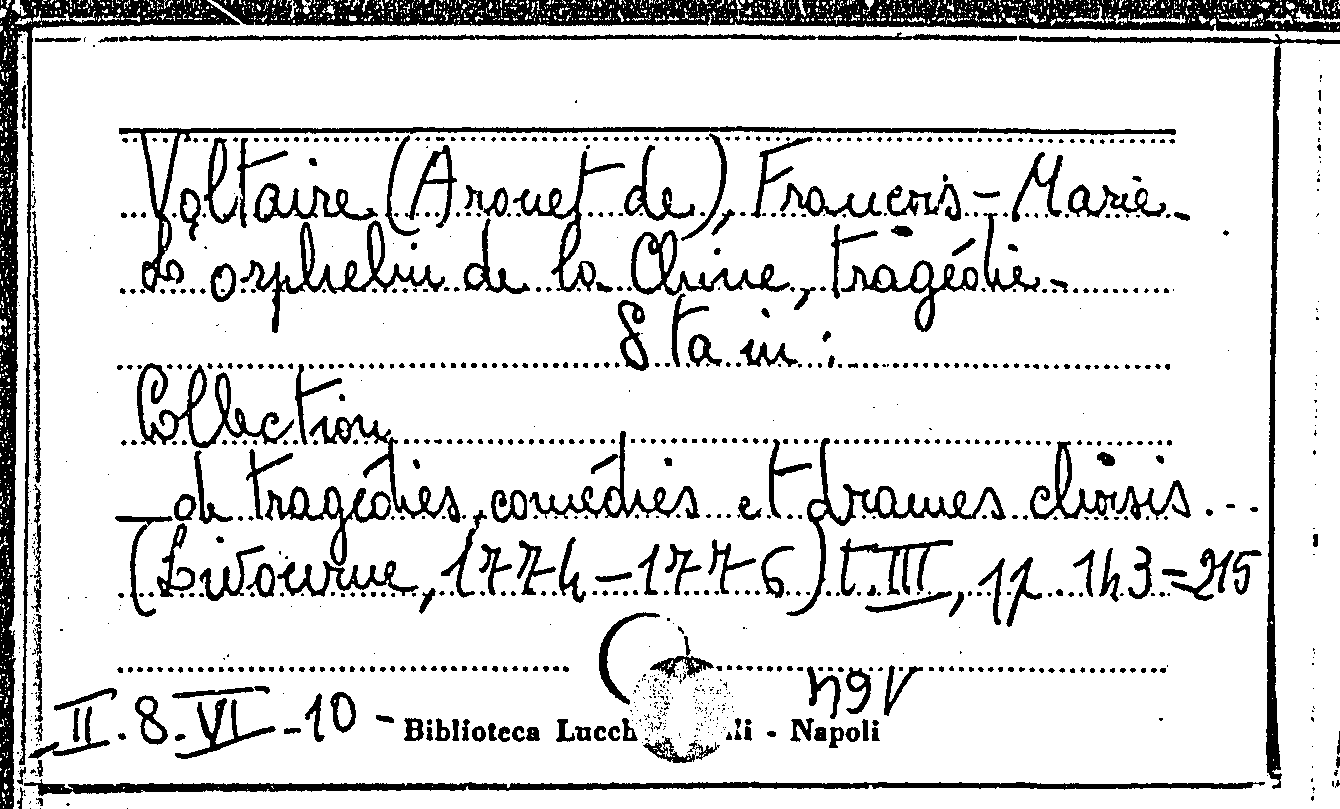 Voltaire (Arouet de), François-Marie.
L'orphelin de la Chine, tragédie.
Sta in:
Collection
_ de tragédies, comédies et drames choisis...
(Livourne, 1774-1776) t. III, pp. 143=215
II.8.VI-10 - Biblioteca Lucch li - Napoli